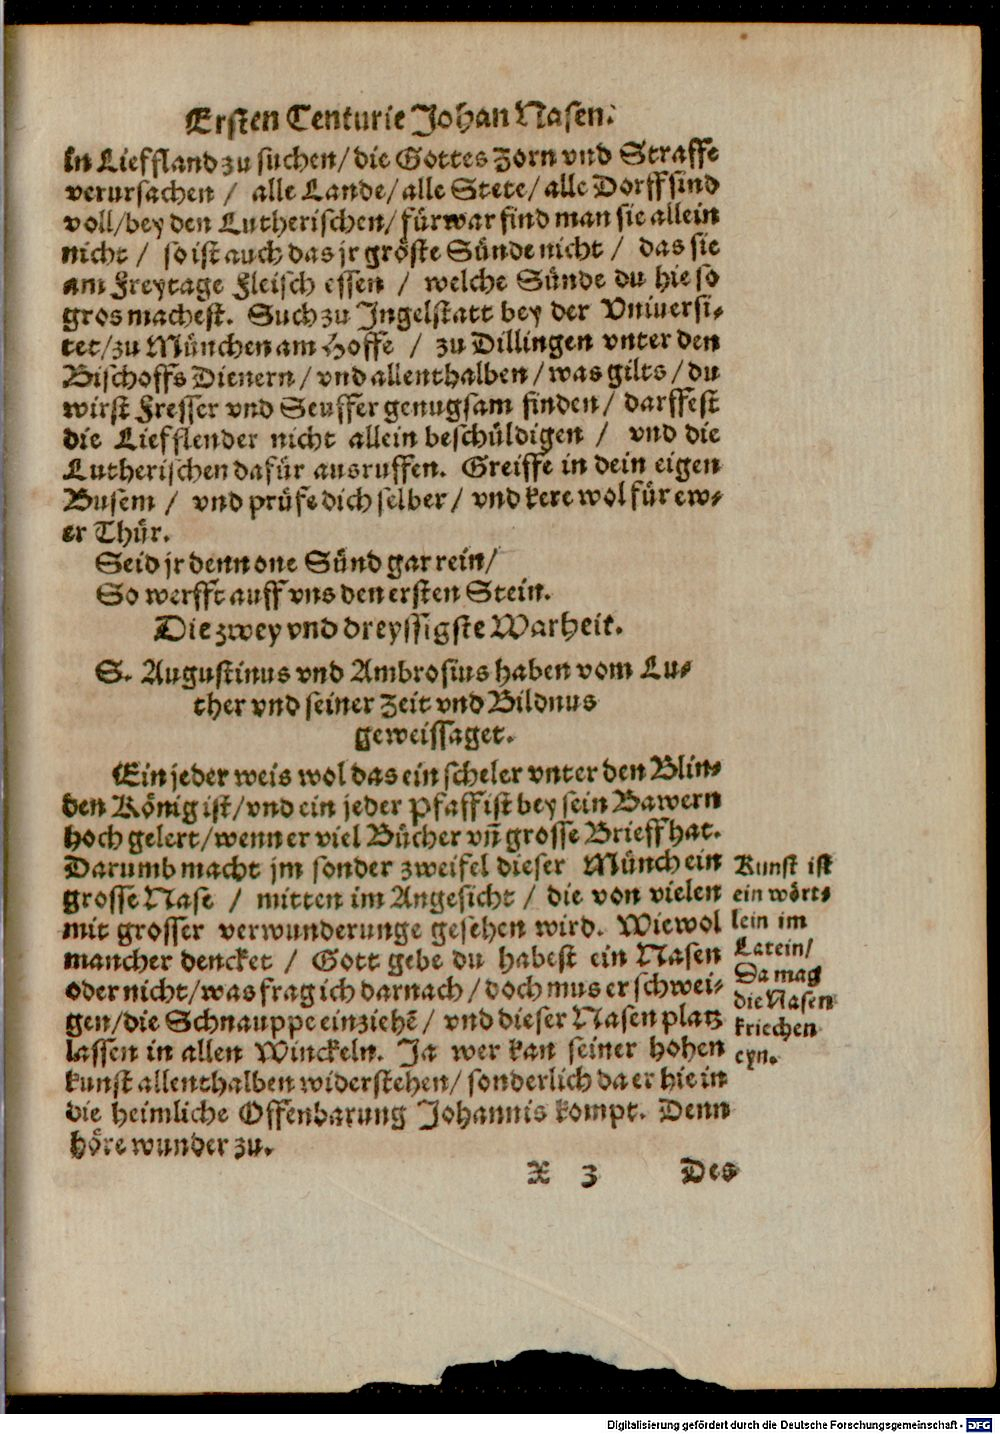 Ersten Centurie Johan Nasen.
In Lieffland zu suchen/die Gottes Zorn vnd Straffe
verursachen / alle Lande/alle Stete/alle Dorff sind
voll/bey den Lutherischen/fürwar find man sie allein
nicht / so ist auch das jr gröste Sünde nicht / das sie
am Freytage Fleisch essen / welche Sünde du hie so
gros machest. Such zu Ingelstatt bey der Vniuersi-
tet/zu München am Hoffe / zu Dillingen vnter den
Bischoffs Dienern/vnd allenthalben/was gilts/du
wirst Fresser vnd Seuffer genugsam finden/darffest
die Liefflender nicht allein beschüldigen / vnd die
Lutherischen dafür ausruffen. Greiffe in dein eigen
Busem / vnd prüfe dich selber/vnd kere wol für ew-
er Thür.
Seid jr denn one Sünd gar rein/
So werfft auff vns den ersten Stein.
Die zwey vnd dreyssigste Warheit.
S. Augustinus vnd Ambrosius haben vom Lu-
ther vnd seiner Zeit vnd Bildnus
geweissaget.
Ein jeder weis wol das ein scheler vnter den Blin-
den König ist/vnd ein jeder Pfaff ist bey sein Bawern
hoch gelert/wenn er viel Bücher vñ grosse Brieff hat.
Darumb macht jm sonder zweifel dieser Münch ein
grosse Nase / mitten im Angesicht / die von vielen
mit grosser verwunderunge gesehen wird. Wiewol
mancher dencket / Gott gebe du habest ein Nasen
oder nicht/was frag ich darnach/doch mus er schwei-
gen/die Schnauppe einziehẽ/vnd dieser Nasen platz
lassen in allen Winckeln. Ja wer kan seiner hohen
kunst allenthalben widerstehen/sonderlich da er hie in
die heimliche Offenbarung Johannis kompt. Denn
höre wunder zu.
Kunst ist
ein wört-
lein im
Latein/
Da mag
die Nasen
kriechen
eyn.
X 3 Des
Digitalisierung gefördert durch die Deutsche Forschungsgemeinschaft - DFG